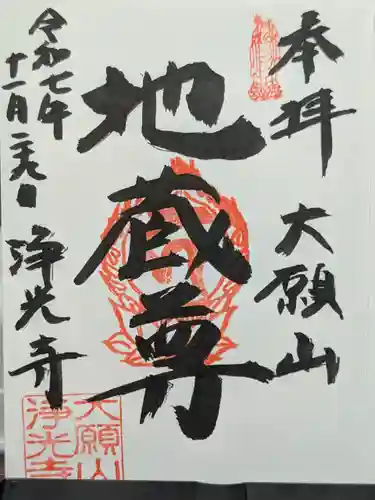 奉拝
大願山
地蔵尊
令和七年
十一月二九日
浄光寺
大願山
浄光寺